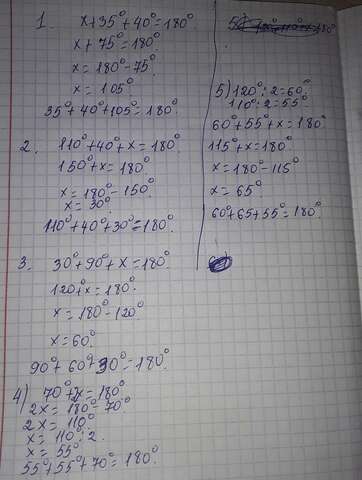 1. x+35°+40°=180°
x+75°=180°.
x=180°-75°.
x=105°.
35°+40°+105°=180°.
2. 110°+40°+x=180°.
150°+x=180°.
x=180°-150°.
x=30°.
110°+40°+30°=180°.
3. 30°+90°+x=180°.
120+x=180°.
x=180°-120°
x=60°.
90°+60°+30°=180°.
4) 70°+2x=180°.
2x=180°-70°
2x=110°.
x=110°:2.
x=55°.
55°+55°+70°=180°.
5) 120°:2=60°.
110°:2=55°.
60°+55°+x=180°
115°+x=180°.
x=180°-115°
x=65°.
60°+65+55°=180°.